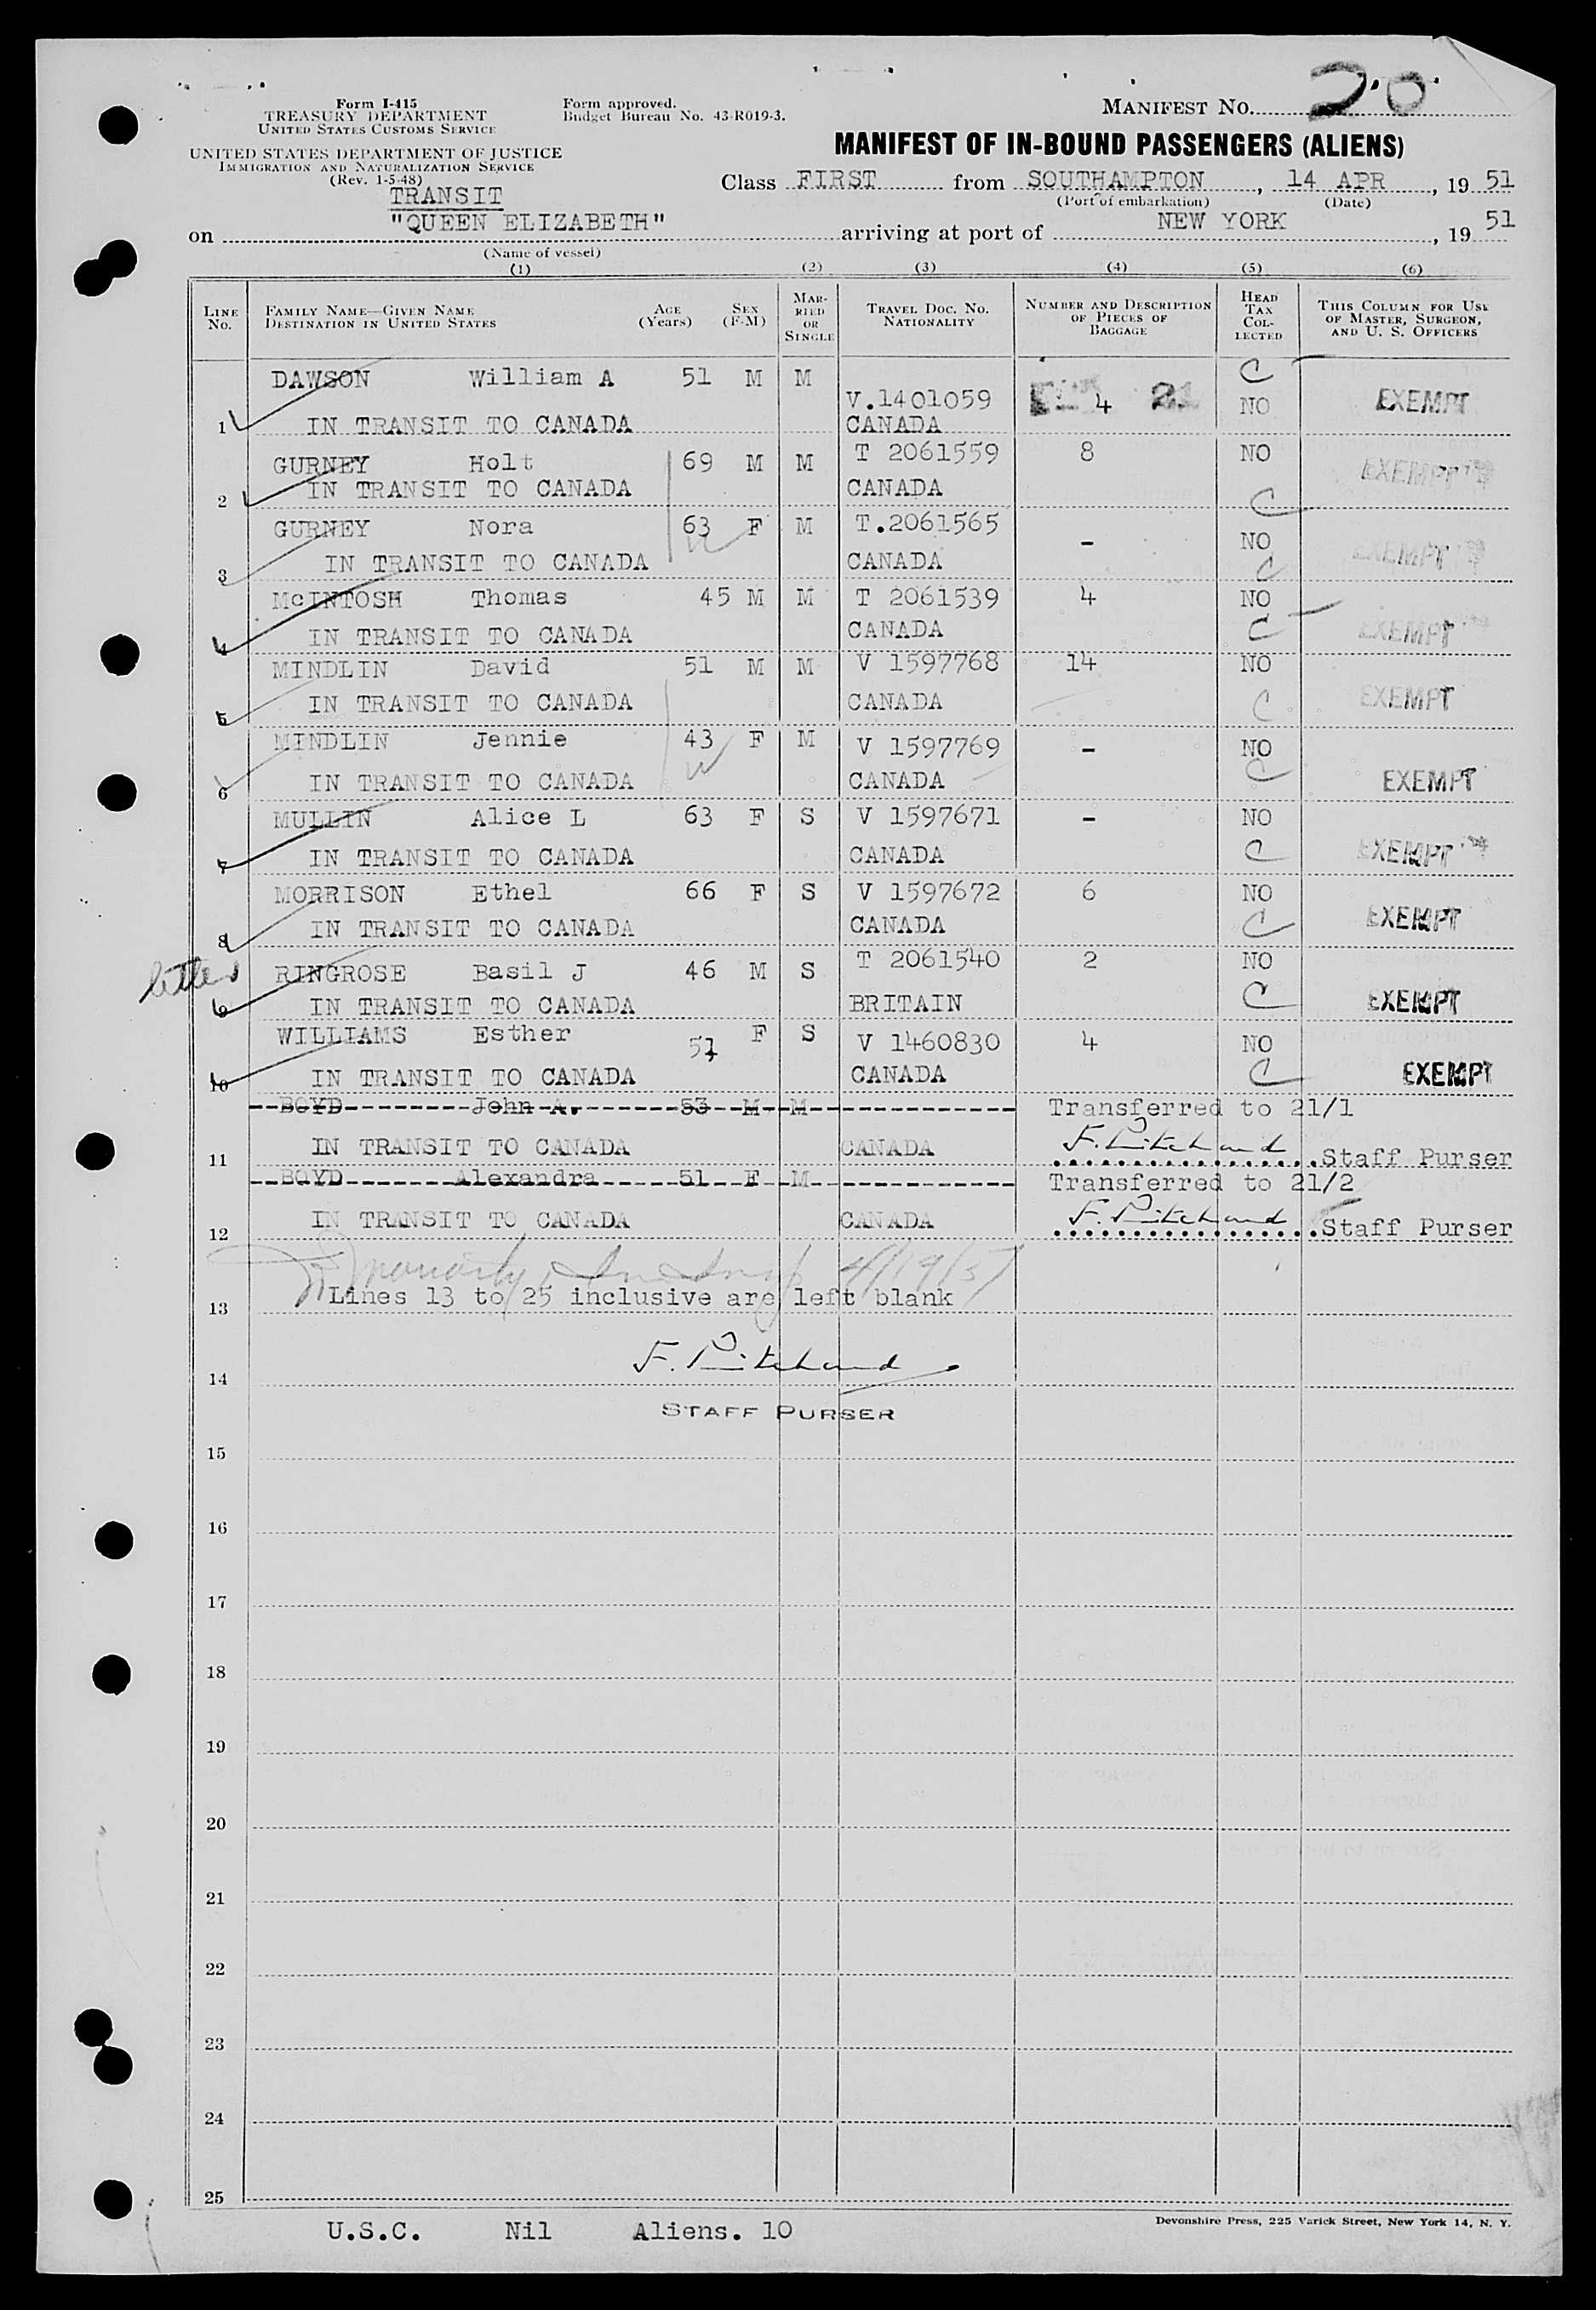 Form I-415
TREASURY DEPARTMENT
UNITED STATES CUSTOMS SERVICE
Form approved.
Budget Bureau No. 43-R019-3.
MANIFEST No. 20
UNITED STATES DEPARTMENT OF JUSTICE
IMMIGRATION AND NATURALIZATION SERVICE
(Rev. 1-5-48)
MANIFEST OF IN-BOUND PASSENGERS (ALIENS)
TRANSIT
Class FIRST from SOUTHAMPTON, 14 APR, 19 51
(Port of embarkation) (Date)
on "QUEEN ELIZABETH" arriving at port of NEW YORK, 19 51
(Name of vessel)
(1) (2) (3) (4) (5) (6)
LINE No. FAMILY NAME—GIVEN NAME DESTINATION IN UNITED STATES AGE (Years) SEX (F-M) MARRIED OR SINGLE TRAVEL DOC. NO. NATIONALITY NUMBER AND DESCRIPTION OF PIECES OF BAGGAGE HEAD TAX COLLECTED THIS COLUMN FOR USE OF MASTER, SURGEON, AND U. S. OFFICERS
DAWSON William A 51 M M V.1401059 4 21 C NO EXEMPT
1 IN TRANSIT TO CANADA CANADA
GURNEY Holt 69 M M T 2061559 8 NO EXEMPT
2 IN TRANSIT TO CANADA CANADA C
GURNEY Nora 63 F M T.2061565 - NO EXEMPT
3 IN TRANSIT TO CANADA CANADA C
McINTOSH Thomas 45 M M T 2061539 4 NO
4 IN TRANSIT TO CANADA CANADA C EXEMPT
MINDLIN David 51 M M V 1597768 14 NO
5 IN TRANSIT TO CANADA CANADA C EXEMPT
MINDLIN Jennie 43 F M V 1597769 - NO
6 IN TRANSIT TO CANADA CANADA C EXEMPT
MULLIN Alice L 63 F S V 1597671 - NO
7 IN TRANSIT TO CANADA CANADA C EXEMPT
MORRISON Ethel 66 F S V 1597672 6 NO
8 IN TRANSIT TO CANADA CANADA C EXEMPT
RINGROSE Basil J 46 M S T 2061540 2 NO
9 IN TRANSIT TO CANADA BRITAIN C EXEMPT
WILLIAMS Esther F S V 1460830 4 NO
10 IN TRANSIT TO CANADA CANADA C EXEMPT
BOYD John A. 53 M M Transferred to 21/1
11 IN TRANSIT TO CANADA CANADA F. Pritchard Staff Purser
BOYD Alexandra 51 F M Transferred to 21/2
12 IN TRANSIT TO CANADA CANADA F. Pritchard Staff Purser
4/19/51
13 Lines 13 to 25 inclusive are left blank
F. Pritchard
14
STAFF PURSER
15
16
17
18
19
20
21
22
23
24
25
U.S.C. Nil Aliens. 10
Devonshire Press, 225 Varick Street, New York 14, N. Y.